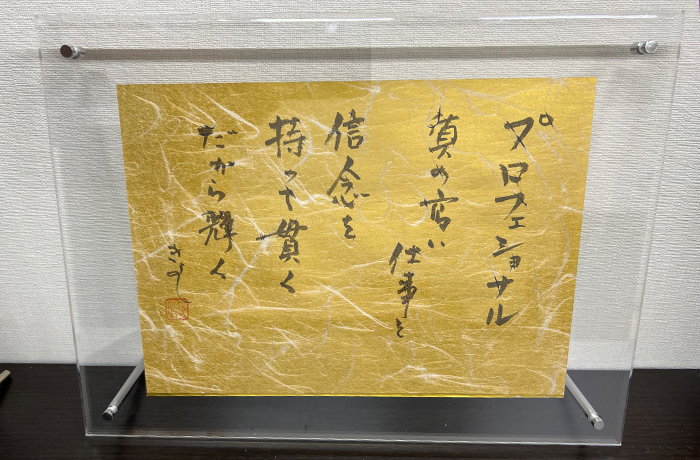 プロフェショナル
質の高い
仕事を
信念を
持って貫く
だから輝く